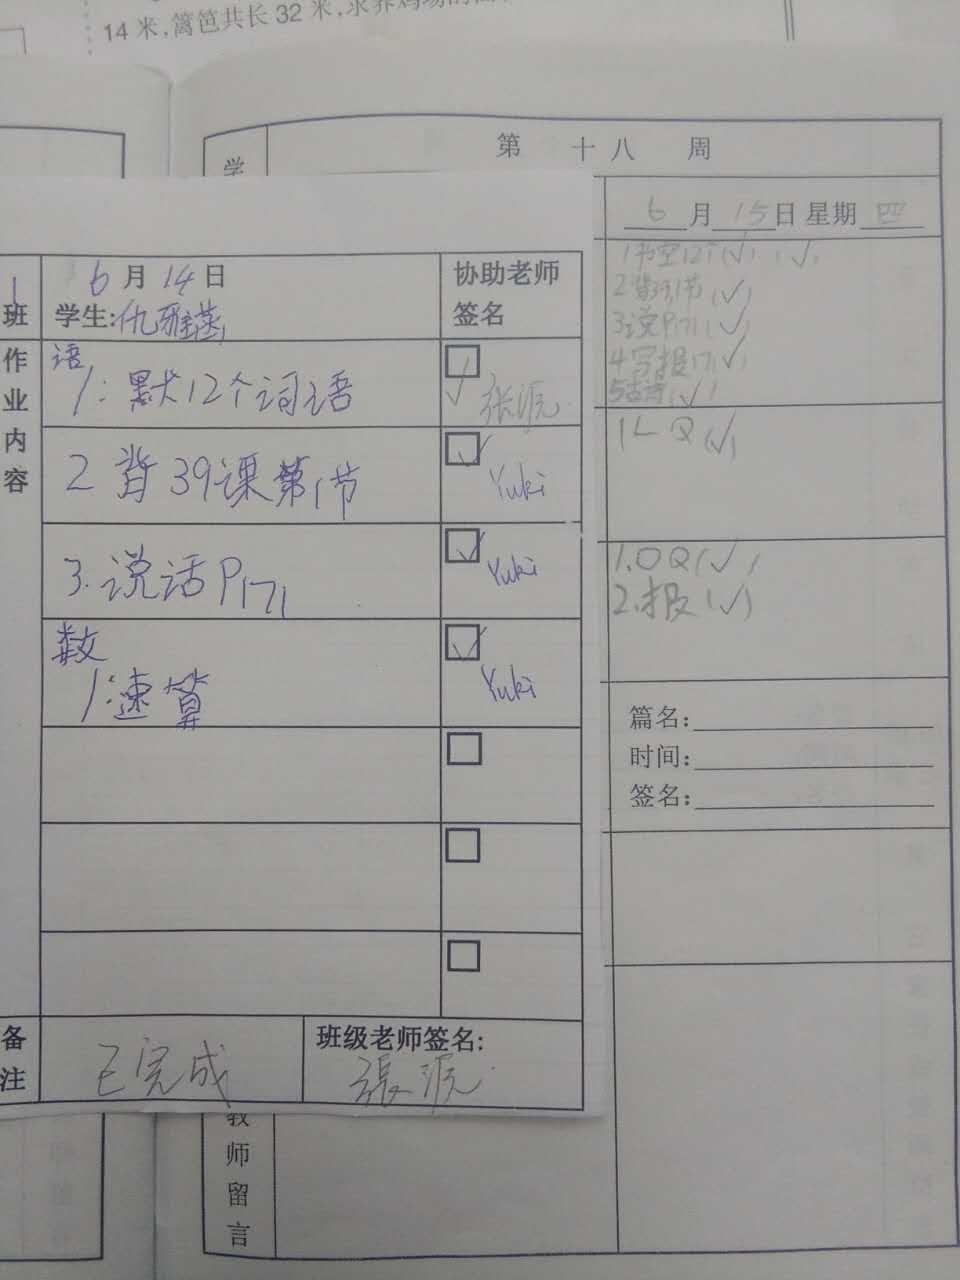 14 米,篱笆共长 32 米,求养鸡场的
第 十八 周
学
6月15日 星期四
1书空12个(√)(√)
2背39,1节(√)
3说P171(√)
4写报17(√)
5古诗(√)
1LQ(√)
1.OQ(√)
2.报(√)
篇名:
时间:
签名:
班
6月14日
学生:仇雅燕
协助老师
签名
作业内容
语
1:默12个词语
张沉
2 背39课第1节
Yuki
3.说话P171
Yuki
数
1:速算
Yuki
备注
已完成
班级老师签名:
張沉
教师留言